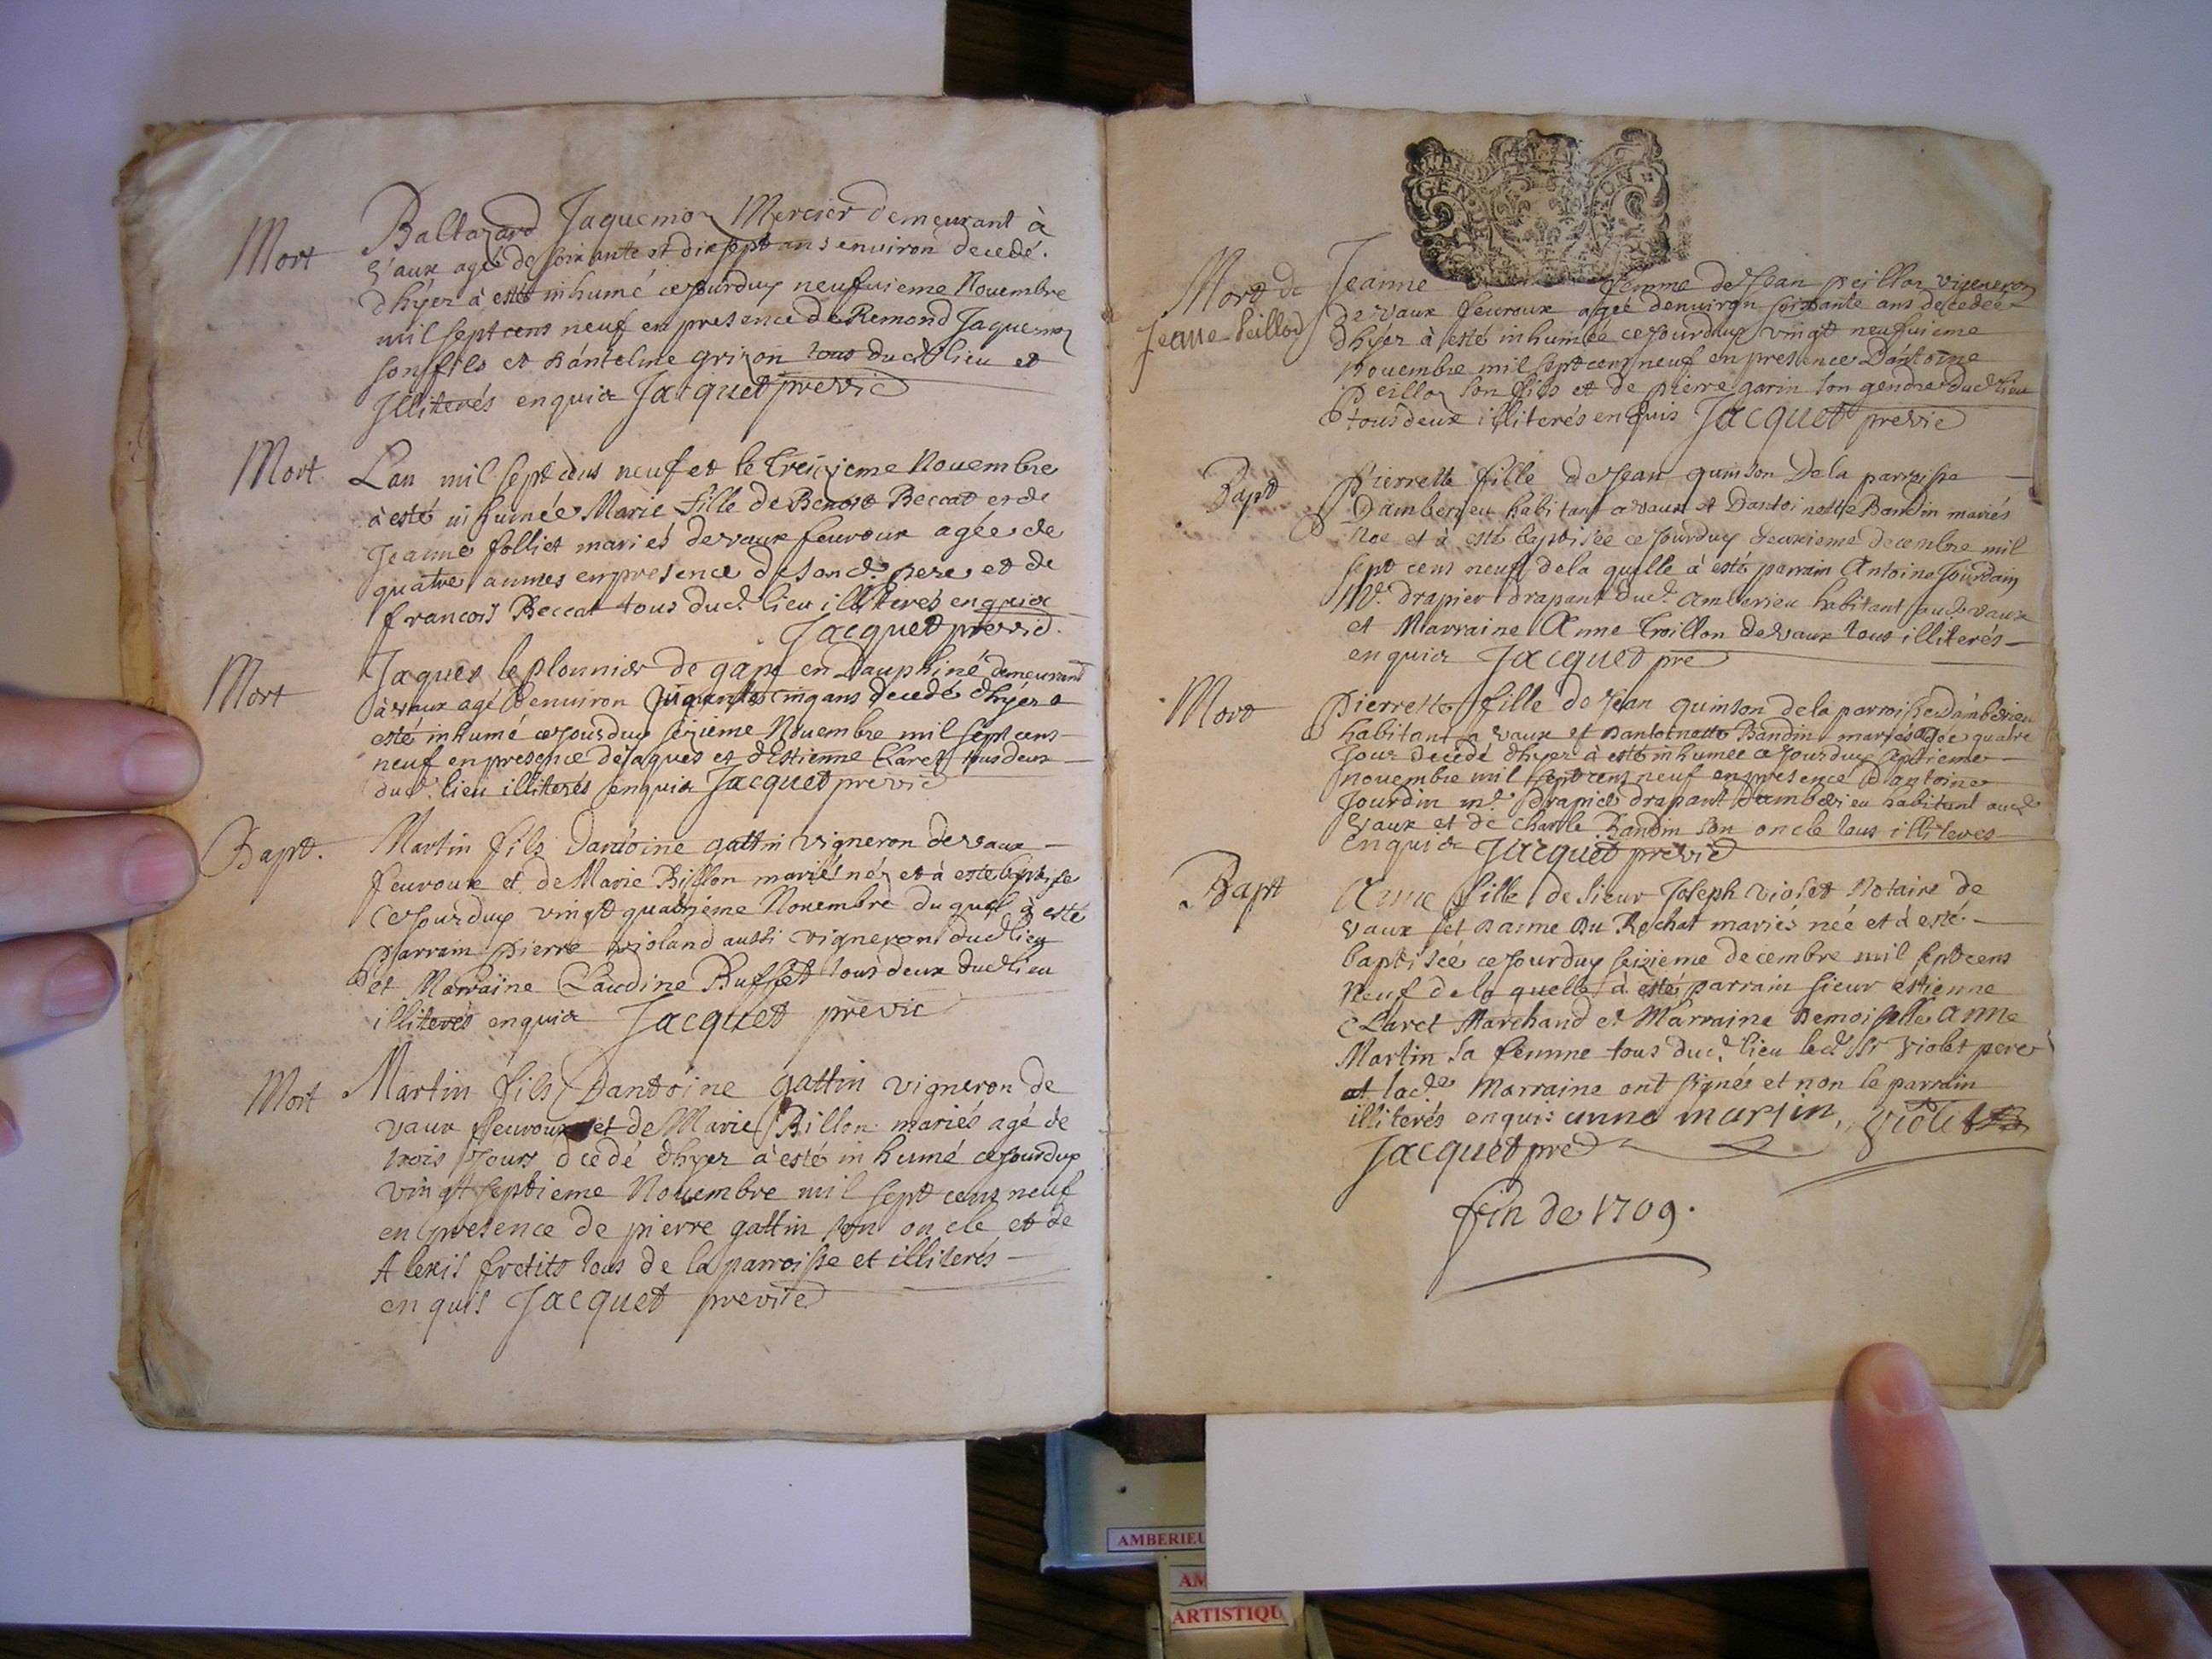 Mort
Baltazard Jaquemoz Mercier demeurant à
Vaux agé de soixante et dix sept ans environ decedé
dhyer à esté inhumé cejourduy neufuieme Nouembre
mil sept cens neuf en presence de Remond Jaquemoz
son fils et Dantelme grizon tous dud lieu et
Jlliterés enquis Jacquet previc
Mort
Lan mil sept cens neuf et le treizieme Nouembre
à esté inhumée Marie fille de Benoit Beccat et de
Jeanne folliet mariés de vaux feuroux agée de
quatre annees en presence de son d. pere et de
francois Beccat tous dud. lieu illiterés enquis
Jacquet previc.
Mort
Jaques le plonnier de gap en Dauphiné demeurant
à vaux agé denuiron cinq ans decedé dhyer a
esté inhumé cejourduy sezieme Nouembre mil sept cens
neuf en presence de Jaques et destienne Claret tous deux
dud. lieu illiterés enquis Jacquet previc
Bapt.
Martin fils Dantoine gattin vigneron de vaux
feuroux et de Marie Billon mariés né et à esté baptisé
cejourduy vingt quatrieme Nouembre du quel à esté
parrain pierre violand aussi vigneron dud lieu
et Marraine Claudine Buffet tous deux dud lieu
illiterés enquis Jacquet previc
Mort
Martin fils Dantoine gattin vigneron de
vaux feuroux et de Marie Billon mariés agé de
trois jours decedé dhyer à esté inhumé cejourduy
vingt septieme Nouembre mil sept cens neuf
en presence de pierre gattin son oncle et de
Alexis fretits tous de la parroisse et illiterés
enquis Jacquet previc
Mort de
Jeanne Peilloz
Jeanne femme de Jean peilloz vigneron
de vaux feuroux agée denuiron soixante ans decedée
dhyer à esté inhumée cejourduy vingt neufuieme
Nouembre mil sept cens neuf en presence Dantoine
Peilloz son fils et de pierre garin son gendre dud lieu
tous deux illiterés enquis Jacquet previc
Bapt
Pierrette fille de Jean quinson De la parroisse
Damberieu habitant a vaux et Dantoinette Bandin mariés
née et à esté baptisée cejourduy deuxieme decembre mil
sept cens neuf de la quelle à esté parrain Antoine Jourdain
Md. drapier drapant dud. amberieu habitant aud. vaux
et Marraine Anne Troillon de vaux tous illiterés
enquis Jacquet pre
Mort
Pierrette fille de Jean quinson de la parroisse damberieu
habitant a vaux et Dantoinette Bandin mariés agée quatre
Jour decedé dhyer à esté inhumee cejourduy septieme
nouembre mil sept cens neuf en presence dantoine
Jourdin md. drapier drapant damberieu habitant aud
vaux et de Charle Bandin son oncle tous illiteres
enquis Jacquet previc
Bapt
Anne fille de sieur Joseph violet Notaire de
vaux et Dame Du Rochat mariés née et à esté
baptisée cejourduy seizieme decembre mil sept cens
Neuf de la quelle à esté parrain sieur estienne
Claret Marchand et Marraine Demoiselle anne
Martin sa femme tous dud. lieu led. sr violet pere
et lad.e Marraine ont signés et non le parrain
illiterés enquis anne martin, violet
Jacquet pre
fin de 1709.
GEN
ON
AMBERIEU
AM
ARTISTIQU